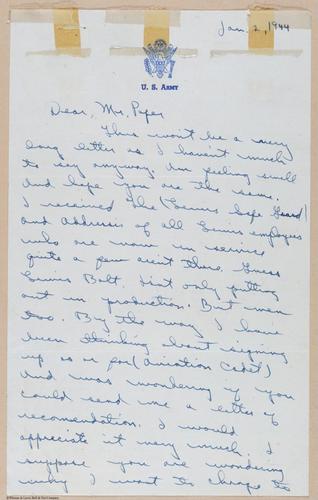 Jan. 2, 1944
U. S. ARMY
Dear, Mr. Piper
This won't be a very
long letter as I haven't much
to say anyway. Am feeling swell
and hope you are the same.
I received the (
and addresses of all employees
who are now in service
quite a few aren't there. Guess
Bolt. isn't only putting
out in production. But men
too. By the way I have
been thinking about signing
up as a for (Aviation Cadet)
And was wondering if you
could send me a letter of
recomendation. I would
appreciate it very much. I
suppose you are wondering
why I want to change to